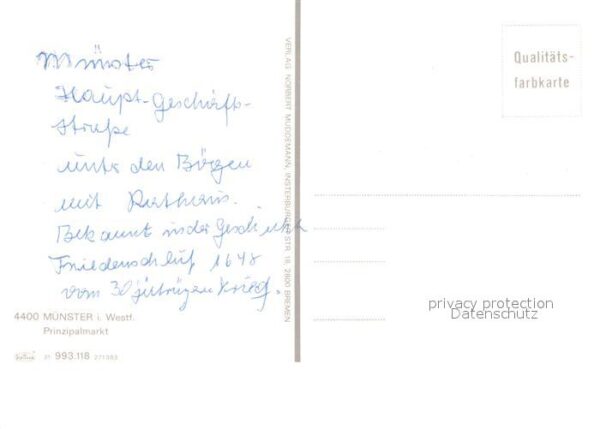 Münster
Haupt-Geschäfts-
straße
unter den Bögen
mit Rathaus.
Bekannt in der Geschichte
Friedenschluß 1648
vom 30 jährigen Krieg.
4400 MÜNSTER i. Westf.
Prinzipalmarkt
21 993.118
VERLAG NORBERT MUGGEMANN, INSTERBURGER STR. 18, 2800 BREMEN
Qualitäts-
farbkarte
privacy protection
Datenschutz